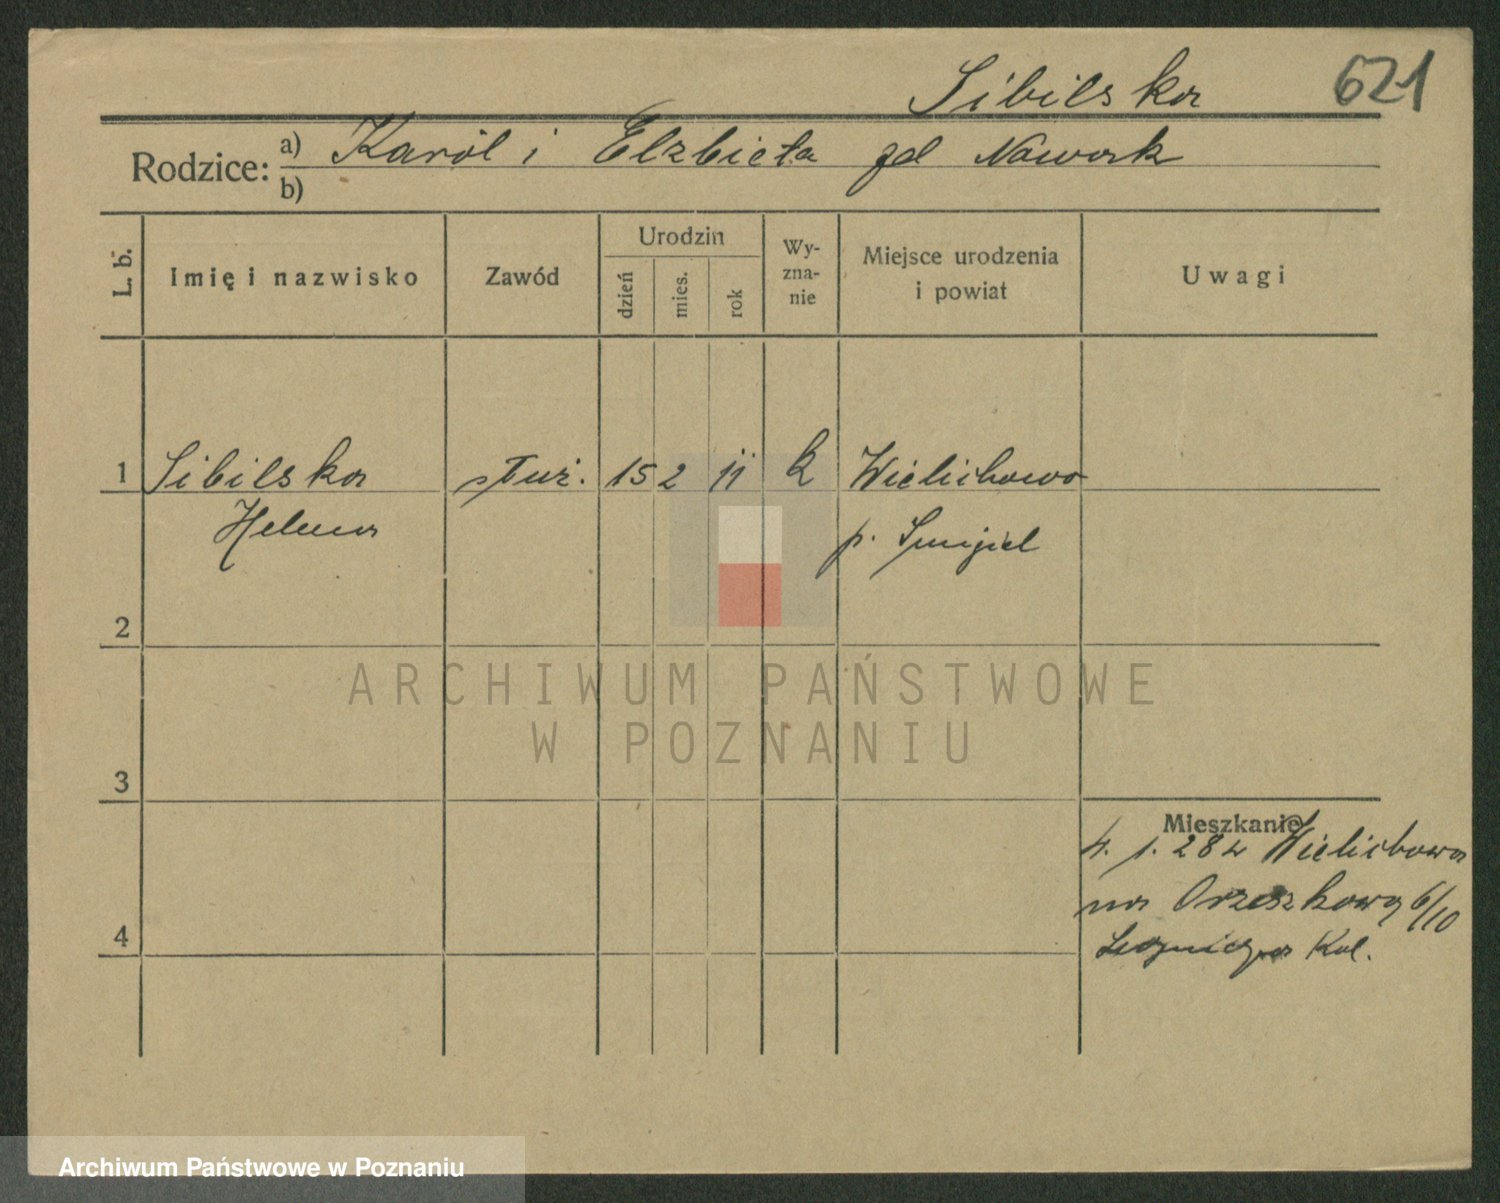 Sibilska 621
Rodzice: a) Karól i Elzbieta zd Nowak
b)
L. b. Imię i nazwisko Zawód Urodzin dzień mies. rok Wyznanie Miejsce urodzenia i powiat Uwagi
1 Sibilska służ. 15 2 11 k Wielichowo
Helena p. Smigiel
2
ARCHIWUM PAŃSTWOWE
W POZNANIU
3
Mieszkanie
4. 1. 28 z Wielichowa
na Orzeszkowej 6/10
4 Kol.
Archiwum Państwowe w Poznaniu